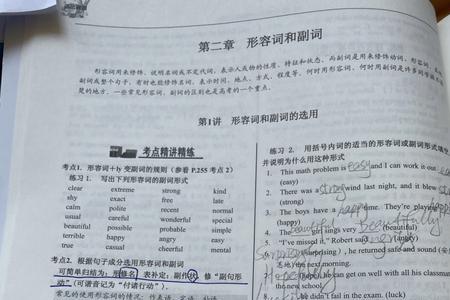 第二章 形容词和副词
形容词用来修饰、说明名词或不定代词,表示人或物的性质、特征和状态。而副词是用来修饰动词、形容词、
副词或整个句子,有时也能修饰名词,表示时间、地点、方式、程度等。何时用形容词,何时用副词是许多同学
楚的地方,一些常见形容词、副词的区别也是高考的一个重点。
第1讲 形容词和副词的选用
考点精讲精练
考点1. 形容词+ly 变副词的规则(参看 P.255 考点2)
练习 1. 写出下列形容词的副词形式
clear extreme strong kind
shy exact free late
calm polite recent normal
usual careful wonderful special
beautiful possible probable simple
terrible happy angry easy
true casual cheerful mental
考点2. 根据句子成分选用形容词和副词
可简单归结为:形修名 表补定;副作状 修“副句形
动”(可谐音记为“付诸行动”)。
练习 2. 用括号内词的适当的形容词或副词形式填空
并说明为什么用这种形式
1. This math problem is easy and I can work it out
(easy)
2. There was a strong wind last night, and it blew
(strong)
3. The boys have a happy time. They're playing
(happy)
4. The beautiful girl sings very beautifully (beautiful)
5. "I've missed it," Robert said (angry)
6. (surprising), he returned safe and sound (安
然地) the next morning.
7. he can get on well with all his classmates
the new school.
8. he didn't fail in the exam. (luck)